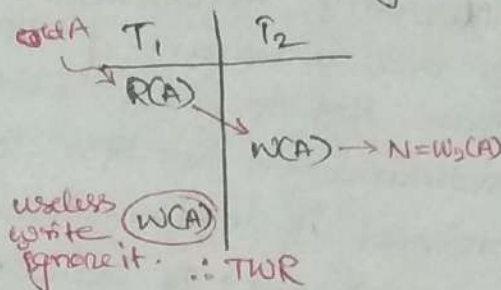 old A T1 T2
R(A)
W(A) → N=W2(A)
useless
write W(A)
ignore it. ∴ TWR